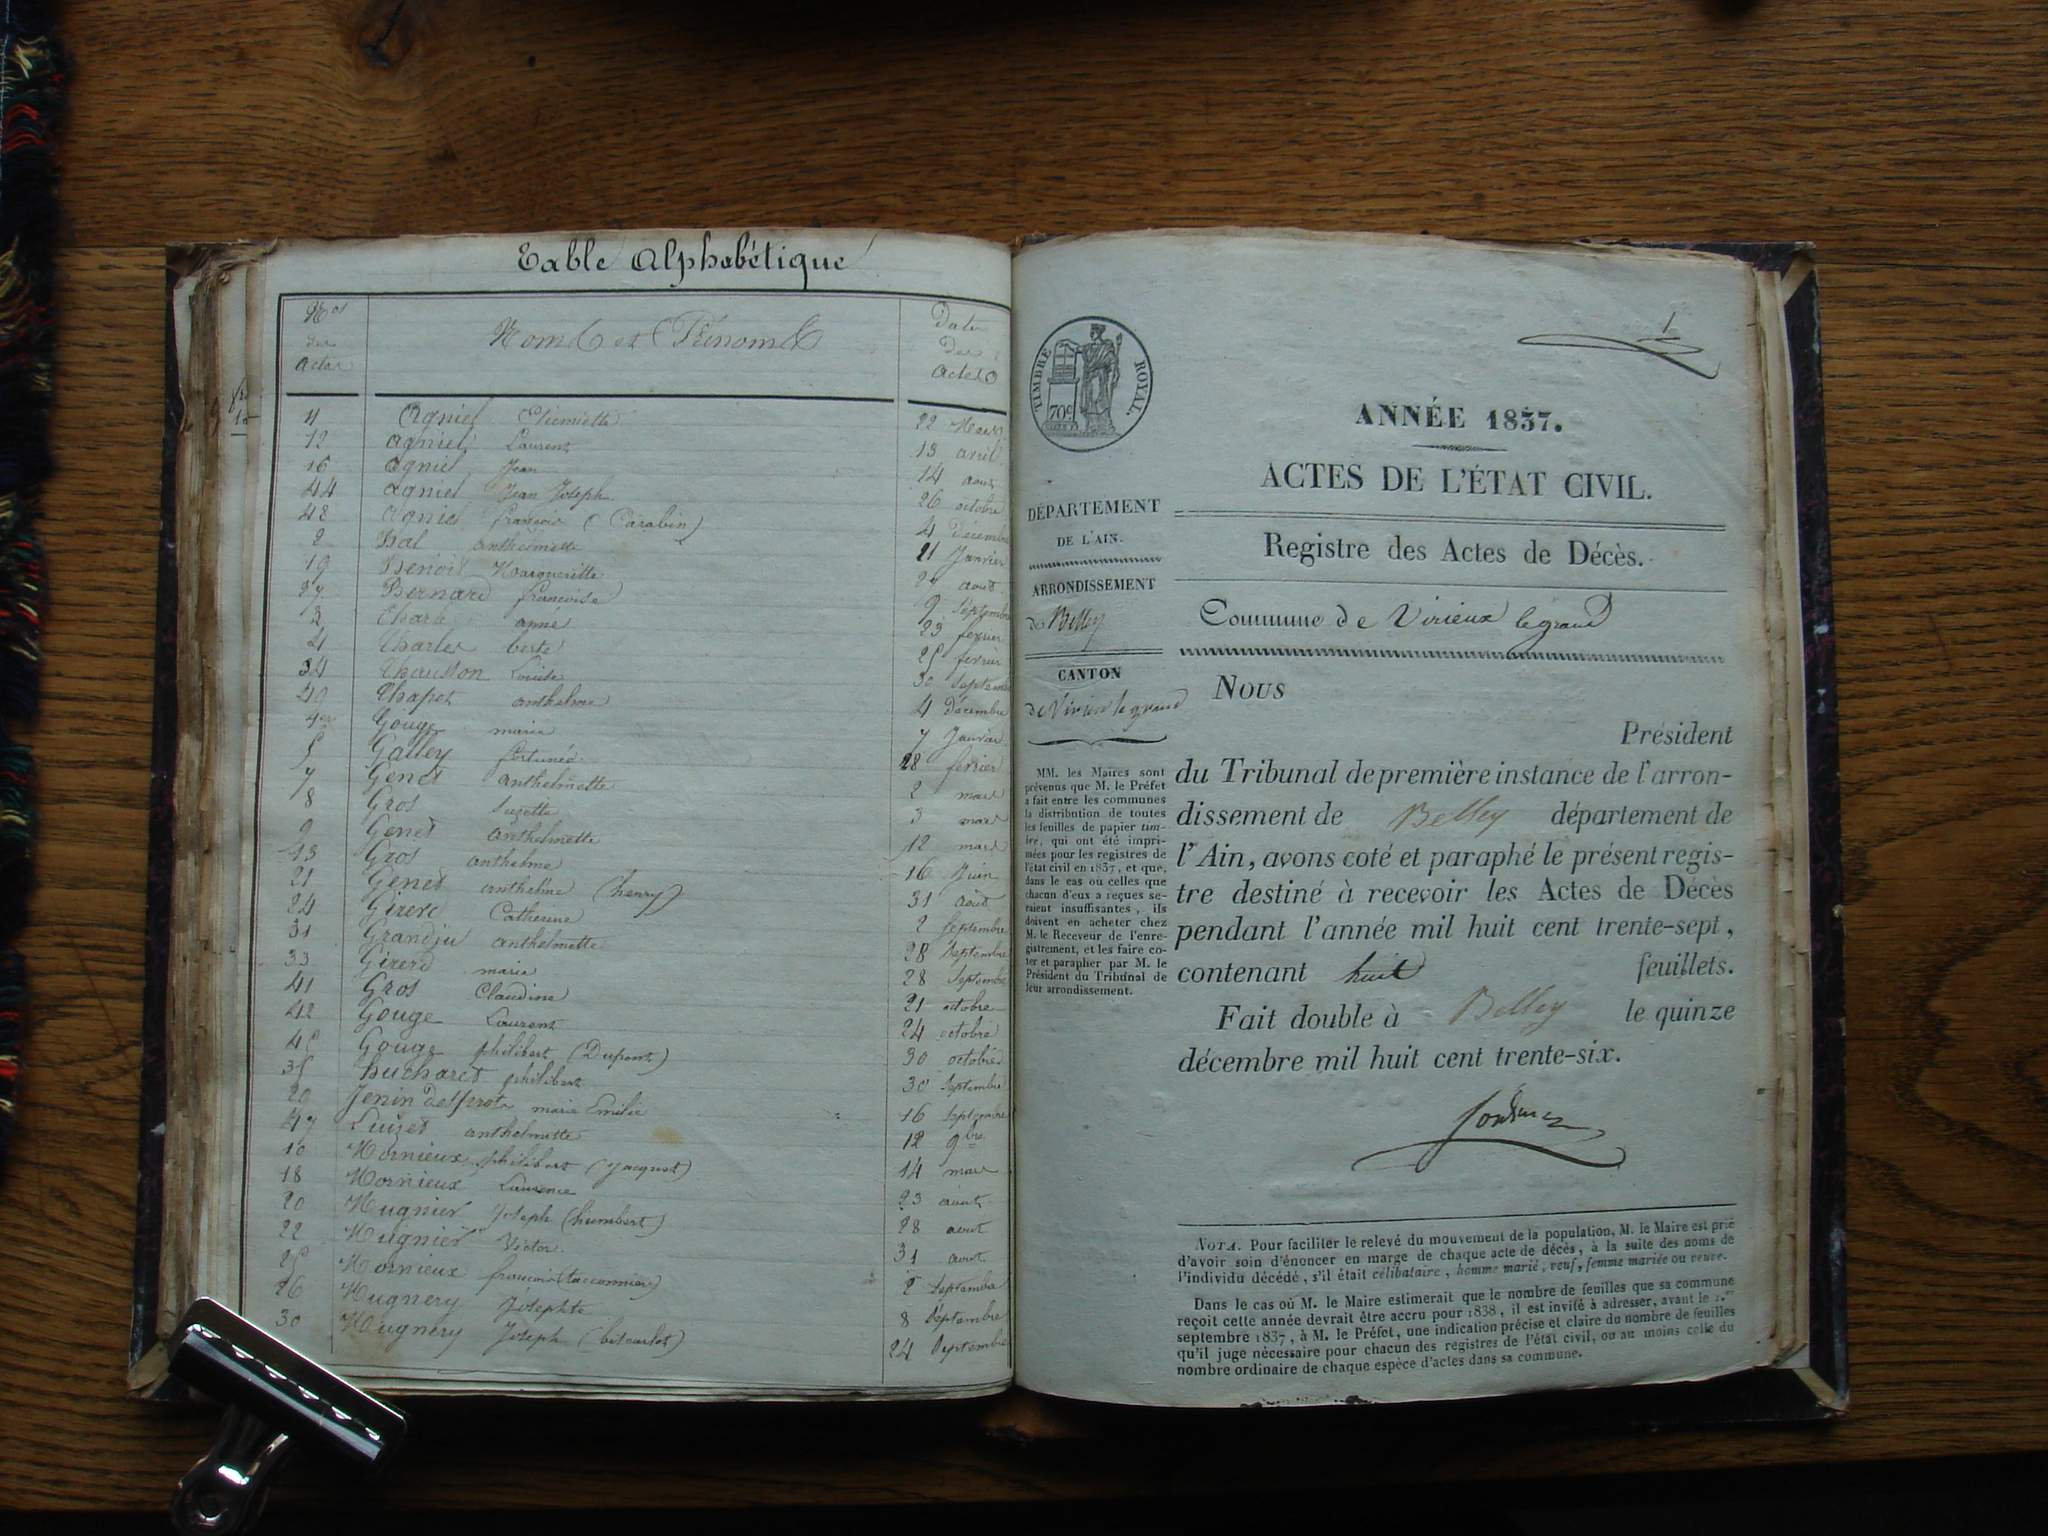 Table Alphabétique
Nos des Actes
Noms et Prénoms
Date des Actes
Agniel Etiennette 22 Mars
12 Agniel Laurent 13 avril
16 Agniel Jean 14 aout
44 Agniel Jean Joseph 26 octobre
48 Agniel françois (Carabin) 4 Décembre
2 anthelmette 21 Janvier
19 Benoit Marguerite aout
27 Bernard françoise 9 Septembre
3 anne 23 fevrier
Charles 25 fevrier
34 Louise 30 Septembre
Chapot anthelme 4 Décembre
Gouge marie 7 Janvier
5 Galley fortuné 28 fevrier
7 Genet anthelmette 2 mars
8 Gros Suzette 3 mars
9 Genet anthelmette 12 mars
13 Gros anthelme 16 Juin
21 Genet anthelme (henry) 31 aout
24 Girerd Catherine 2 Septembre
31 Grandju anthelmette 28 Septembre
33 Girerd marie 28 Septembre
41 Gros Claudine 21 octobre
42 Gouge Laurent 24 octobre
45 Gouge philibert (Dupont) 30 octobre
35 hucharet philibert 30 Septembre
20 Jenin marie Emilie 16 Septembre
47 Luizet anthelmette 12 9bre
10 Mornieux philibert (Jacquet) 14 mars
18 Mornieux Laurence 23 aout
20 Mugnier Joseph (humbert) 28 aout
22 Mugnier Victor 31 aout
25 Mornieux françois 2 Septembre
26 Mugnery Josephte 8 Septembre
30 Mugnery Joseph 24 Septembre
1
TIMBRE ROYAL.
70c
ANNÉE 1837.
ACTES DE L'ÉTAT CIVIL.
Registre des Actes de Décès.
Commune de Virieux le grand
DÉPARTEMENT
DE L'AIN.
ARRONDISSEMENT
de Belley
CANTON
de Virieu le grand
MM. les Maires sont
prévenus que M. le Préfet
a fait entre les communes
la distribution de toutes
les feuilles de papier tim-
bré, qui ont été impri-
mées pour les registres de
l'état civil en 1837, et que,
dans le cas où celles que
chacun d'eux a reçues se-
raient insuffisantes, ils
doivent en acheter chez
M. le Receveur de l'enre-
gistrement, et les faire co-
ter et parapher par M. le
Président du Tribunal de
leur arrondissement.
NOUS
Président
du Tribunal de première instance de l'arron-
dissement de Belley département de
l'Ain, avons coté et paraphé le présent regis-
tre destiné à recevoir les Actes de Décès
pendant l'année mil huit cent trente-sept,
contenant huit feuillets.
Fait double à Belley le quinze
décembre mil huit cent trente-six.
NOTA. Pour faciliter le relevé du mouvement de la population, M. le Maire est prié
d'avoir soin d'énoncer en marge de chaque acte de décès, à la suite des noms de
l'individu décédé, s'il était célibataire, homme marié, veuf, femme mariée ou veuve.
Dans le cas où M. le Maire estimerait que le nombre de feuilles que sa commune
reçoit cette année devrait être accru pour 1838, il est invité à adresser, avant le 1.er
septembre 1837, à M. le Préfet, une indication précise et claire du nombre de feuilles
qu'il juge nécessaire pour chacun des registres de l'état civil, ou au moins celle du
nombre ordinaire de chaque espèce d'actes dans sa commune.